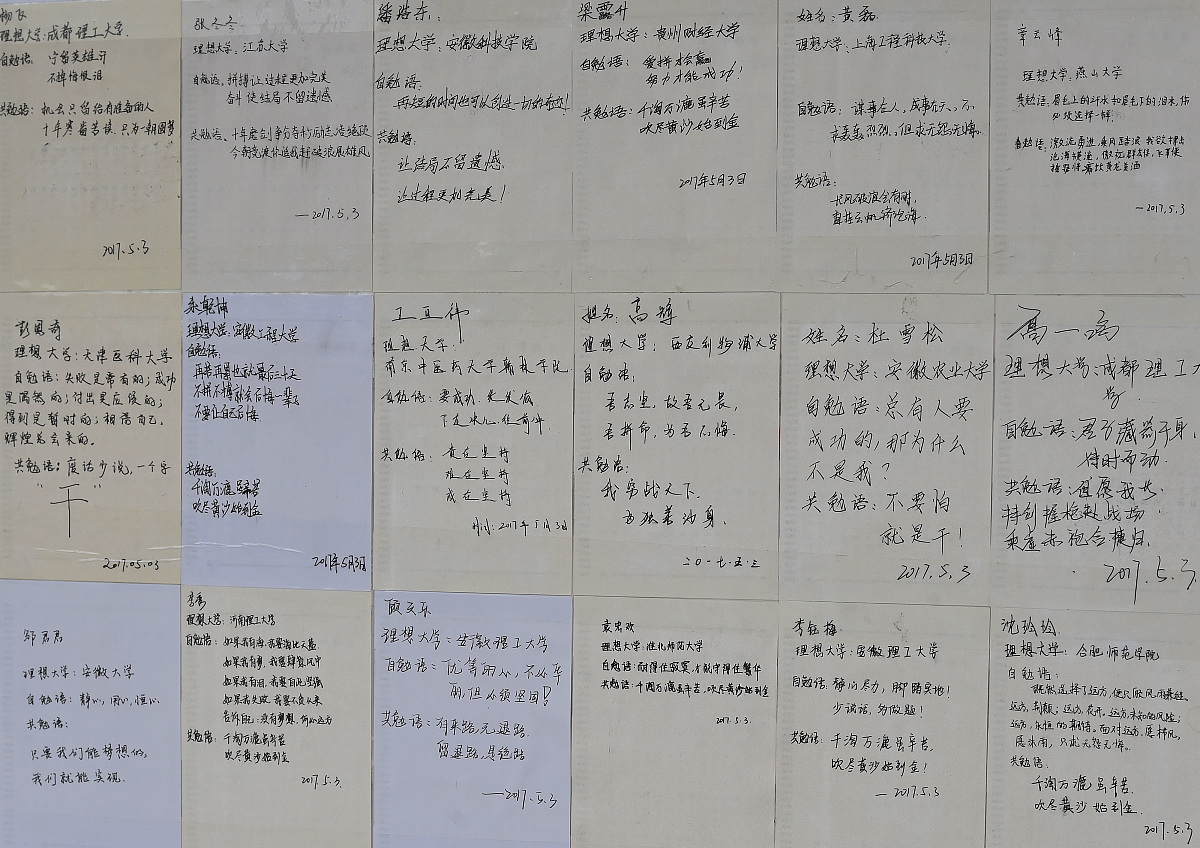 杨飞
理想大学:成都理工大学
自勉语: 宁留英雄牙
不掉悔恨泪
共勉语: 机会只留给有准备的人
十年寒窗苦读,只为一朝圆梦
2017.5.3
张冬冬
理想大学:江苏大学
自勉语,拼搏让过程更加完美
奋斗使结局不留遗憾
共勉语,十年磨剑争分夺秒励志凌绝顶
今朝竞渡你追我赶破浪展雄风
—2017.5.3
潘浩东:
理想大学:安徽科技学院
自勉语:
再短的时间也可以创造一切的奇迹!
共勉语:
让结局不留遗憾
让过程更加完美!
梁露升
理想大学:贵州财经大学
自勉语: 爱拼才会赢
努力才能成功!
共勉语: 千淘万漉虽辛苦
吹尽黄沙始到金
2017年5月3日
姓名:黄磊
理想大学:上海工程科技大学
自勉语: 谋事在人,成事在天,不
求轰轰烈烈,但求无怨无悔.
共勉语:
长风破浪会有时,
直挂云帆济沧海.
2017年5月3日
章云峰
理想大学:燕山大学
共勉语,眉毛上的汗水和眉毛下的泪水,你
必须选择一样.
自勉语:激流勇进,乘风踏浪,我欲
—2017.5.3
彭思奇
理想大学:天津医科大学
自勉语:失败是常有的;成功
是偶然的;付出是应该的;
得到是暂时的;相信自己,
辉煌总会来的。
共勉语:废话少说,一个字
"干"
2017.05.03
朱乾坤
理想大学:安徽工程大学
自勉语:
再苦再累也就最后三十天
不拼不搏就会后悔一辈子
不要让自己后悔
共勉语:
千淘万漉虽辛苦
吹尽黄沙始到金
2017年5月3日
王正伟
理想大学:
南京中医药大学翰林学院
自勉语:要成功,先发疯
下定决心往前冲
共勉语: 贵在坚持
难在坚持
成在坚持
时间:2017年5月3日
姓名:高辉
理想大学:西交利物浦大学
自勉语:
吾志坚,故吾无畏,
吾拼命,为吾不悔.
共勉语:
我穷战天下.
为独善汝身.
二〇一七.五.三
姓名:杜雪松
理想大学:安徽农业大学
自勉语:总有人要
成功的,那为什么
不是我?
共勉语:不要怕
就是干!
2017.5.3
高一鸣
理想大学:成都理工大
学.
自勉语:君子藏器于身,
待时而动.
共勉语:但愿我等
持剑握枪赴战场
乘虚赤砲合捷归.
2017.5.3.
邹君君
理想大学:安徽大学
自勉语:静心,用心,恒心.
共勉语:
只要我们能梦想的,
我们就能实现.
李秀
理想大学:河南理工大学
自勉语: 如果我有海,我要海比天蓝
如果我有梦,我要肆意风中
如果我有泪,我要自此坚强
如果我失败,我要不负从来
告诉自己:没有梦想,何必远方
共勉语: 千淘万漉虽辛苦
吹尽黄沙始到金
2017.5.3.
顾天乐
理想大学:安徽理工大学
自勉语:优等的心,不必华
丽,但必须坚固!
共勉语:有来路,无退路.
留退路,是绝路
—2017.5.3
袁忠欢
理想大学:淮北师范大学
自勉语:耐得住寂寞,才能守得住繁华
共勉语:千淘万漉虽辛苦,吹尽黄沙始到金
2017.5.3.
李钰梅
理想大学:安徽理工大学
自勉语:静心尽力,脚踏实地!
少说话,多做题!
共勉语:千淘万漉虽辛苦,
吹尽黄沙始到金!
—2017.5.3
沈玲玲
理想大学:合肥师范学院
自勉语:
既然选择了远方,便只顾风雨兼程.
远方,荆棘;远方,花开;远方,未知的风险;
远方,永恒的期待。面对远方,废掉风,
废掉雨,只此无怨无悔.
共勉语:
千淘万漉虽辛苦
吹尽黄沙始到金.
2017.5.3